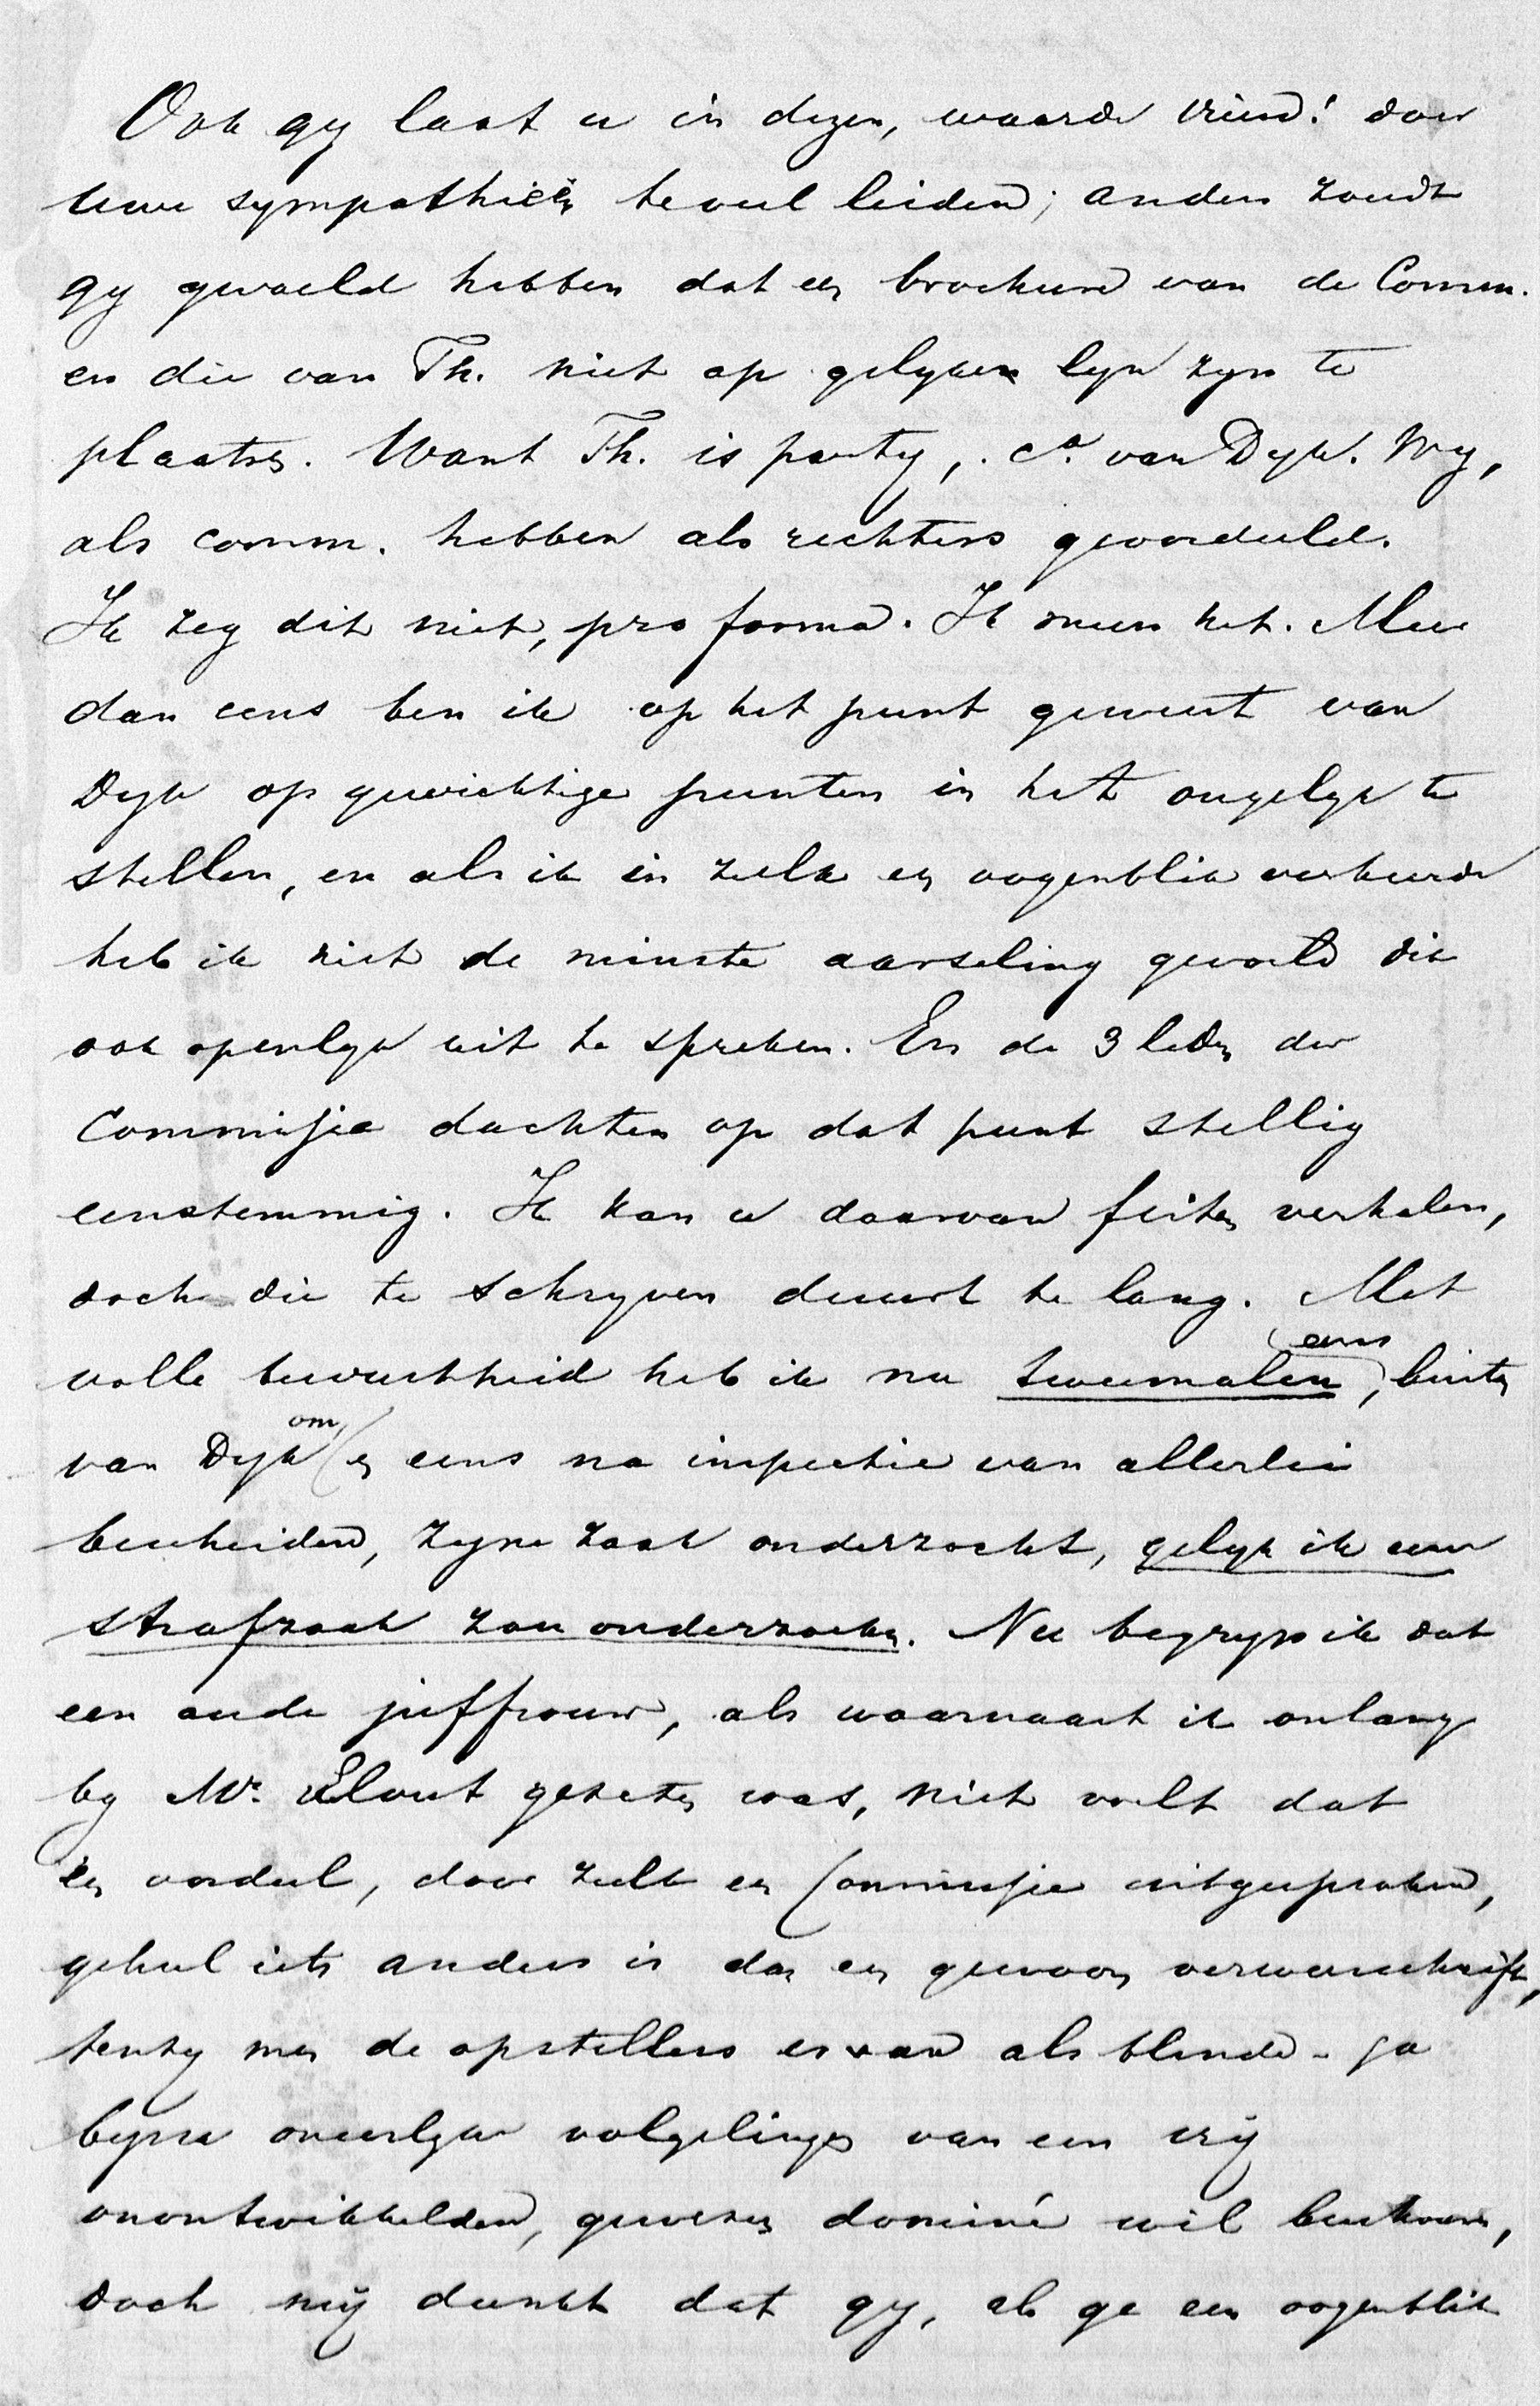 Ook gy laat u in dezen, waarde vriend! door
uwe sympathieën te veel leiden; anders zoudt
gy gevoeld hebben dat een brochure van de Comm.
en die van Th. niet op gelyken lyn zyn te
plaatsen. Want Th. is party, ca. van Dyk. Wy,
als comm. hebben als rechters geoordeeld.
Ik zeg dit niet, pro forma. Ik meen het. Meer
dan eens ben ik op het punt geweest van
Dyk op gewichtige punten in het ongelyk te
stellen, en als ik in zulk een oogenblik verkeerde
heb ik niet de minste aarseling gevoeld dit
ook openlyk uit te spreken. En de 3 leden der
Commissie dachten op dat punt stellig
eenstemmig. Ik kan u daarvan feiten verhalen,
doch die te schryven duurt te lang. Met
volle bewustheid heb ik nu tweemalen, eens buiten
van Dyk om, en eens na inspectie van allerlei
bescheiden, zyne zaak onderzocht, gelyk ik een
strafzaak zou onderzoeken. Nu begryp ik dat
een oude juffrouw, als waarnaast ik onlangs
by Mr. Elout gezeten was, niet voelt dat
een oordeel, door zulk een Commissie uitgesproken,
geheel iets anders is dan een gewoon verweerschrift,
tenzy men de opstellers ervan als blinde - ja
byna oneerlyke volgelingen van een vrij
onontwikkelden, gewezen dominé wil beschouwen,
doch mij dunkt dat gy, als ge een oogenblik